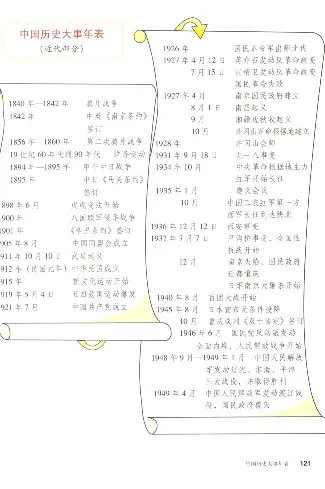 中国历史大事年表
(近代部分)
1840 年—1842 年 鸦片战争
1842 年 中英《南京条约》
签订
1856 年—1860 年 第二次鸦片战争
19 世纪 60 年代到 90 年代 洋务运动
1894 年—1895 年 甲午中日战争
1895 年 中日《马关条约》
签订
898 年 6 月 戊戌变法开始
900 年 八国联军侵华战争
901 年 《辛丑条约》签订
905 年 8 月 中国同盟会成立
911 年 10 月 10 日 武昌起义
912 年 (民国元年) 中华民国成立
915 年 新文化运动开始
919 年 5 月 4 日 五四爱国运动爆发
921 年 7 月 中国共产党成立
1926 年 国民革命军出师北伐
1927 年 4 月 12 日 蒋介石发动反革命政变
7 月 15 日 汪精卫发动反革命政变
国民革命失败
1927 年 4 月 南京国民政府建立
8 月 1 日 南昌起义
9 月 湘赣边秋收起义
10 月 井冈山革命根据地建立
1928 年 井冈山会师
1931 年 9 月 18 日 九一八事变
1934 年 10 月 中央革命根据地主力
红军开始长征
1935 年 1 月 遵义会议
10 月 中国工农红军第一方
面军长征到达陕北
1936 年 12 月 12 日 西安事变
1937 年 7 月 7 日 卢沟桥事变，全国性
抗战开始
12 月 南京失陷，国民政府
迁都重庆
日军南京大屠杀开始
1940 年 8 月 百团大战开始
1945 年 8 月 日本宣布无条件投降
10 月 重庆谈判《双十协定》签订
1946 年 6 月 国民党反动派发动
全面内战，人民解放战争开始
1948 年 9 月—1949 年 1 月 中国人民解放
军发动辽沈、淮海、平津
三大战役，并取得胜利
1949 年 4 月 中国人民解放军发动渡江战
役，国民政府覆灭
中国历史大事年表 121